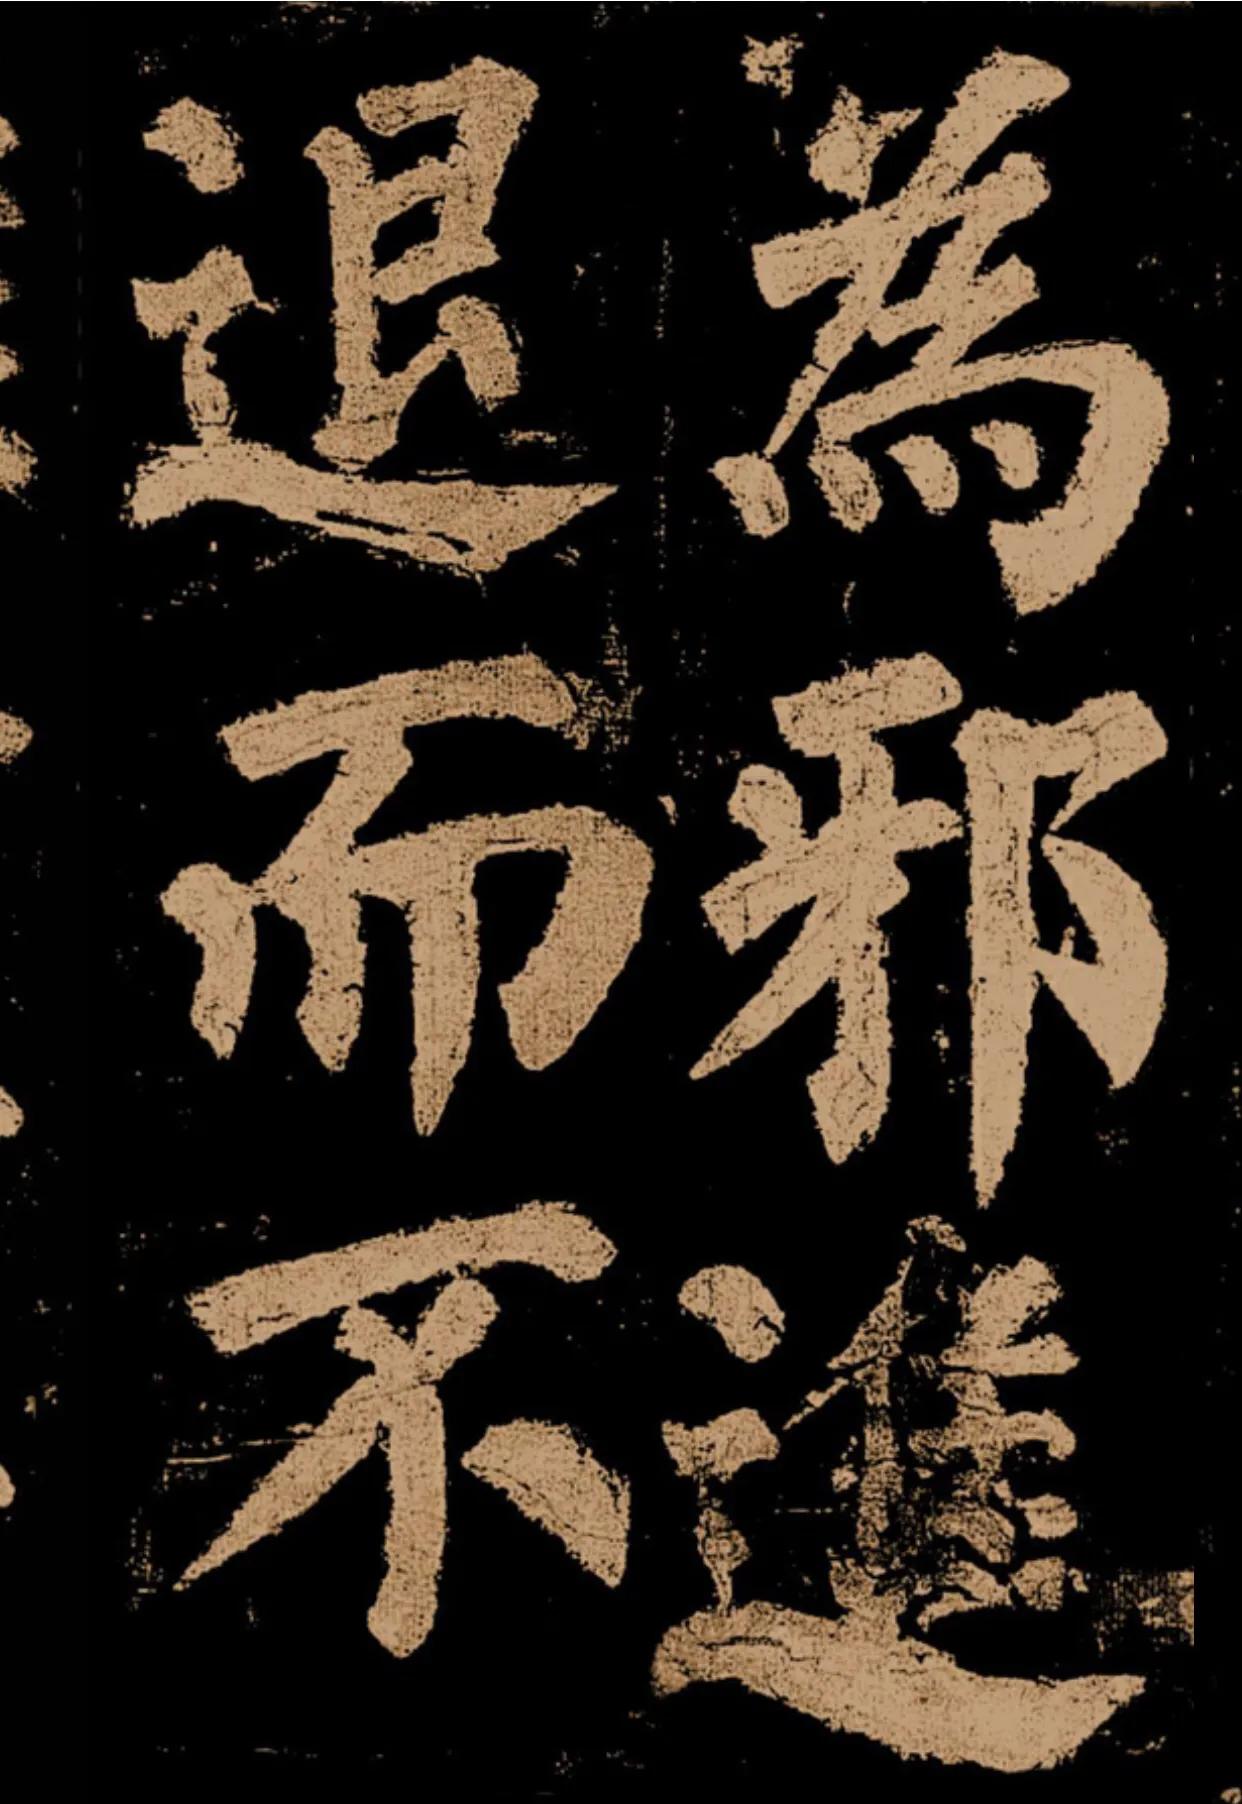 為邪進
退而不